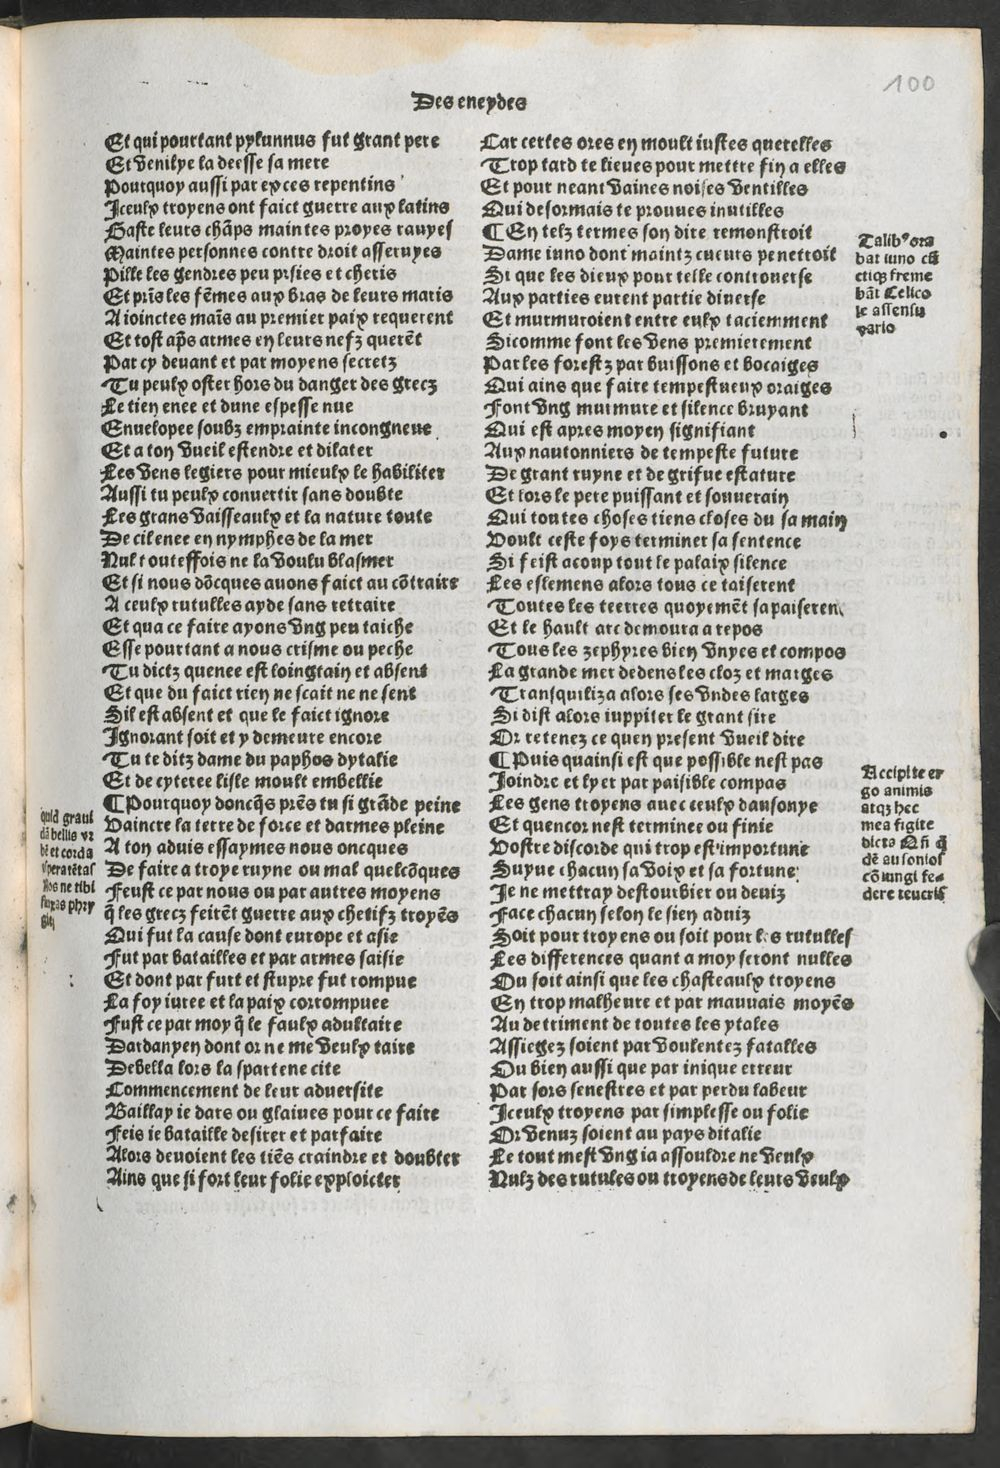 100
Des eneydes
Et qui pourtant pylunnus fut grant pere
Et Venilye la deesse sa mere
Pourquoy aussi par exces repentins
Iceulx troyens ont faict guerre aux latins
Gaste leurs chãps maintes proyes rauyes
Maintes personnes contre droit asseruyes
Pille les gendres peu prsies et cheris
Et prĩs les fẽmes aux bras de leurs maris
Aioinctes maĩs au premier paix requerent
Et tost aṕs armes en leurs nefz querẽt
Par cy deuant et par moyens secretz
Tu peulx oster hors du danger des grecz
Le tien enee et dune espesse nue
Enuelopee soubz emprainte incongneue
Et a ton Vueil estendre et dilater
Les Vens legiers pour mieulx le habiliter
Aussi tu peulx conuertir sans doubte
Les grans Vaisseaulx et la nature toute
De cilenee en nymphes de la mer
Nul touteffois ne la Voulu blasmer
Et si nous dõcques auons faict au cõtraire
A ceulx rutulles ayde sans retraire
Et qua ce faire ayons Vng peu taiche
Esse pourtant a nous crisme ou peche
Tu dictz quenee est loingtain et absent
Et que du faict rien ne scait ne ne sent
Sil est absent et que le faict ignore
Ignorant soit et y demeure encore
Tu te ditz dame du paphos dytalie
Et de cyteree lisle moult embellie
¶ Pourquoy doncq̃s prẽs tu si grãde peine
Vaincre la terre de force et darmes pleine
A ton aduis essaymes nous oncques
De faire a troye ruyne ou mal quelcõques
Feust ce par nous ou par autres moyens
q̃ les grecz feirẽt guerre aux chetifz troyẽs
Qui fut la cause dont europe et asie
Fut par batailles et par armes saisie
Et dont par furt et stupre fut rompue
La foy iuree et la paix corrompuee
Fust ce par moy q̃ le faulx adultaire
Dardanyen dont or ne me Veulx taire
Debella lors la spartene cite
Commencement de leur aduersite
Baillay ie dars ou glaiues pour ce faire
Feis ie bataille desirer et parfaire
Alors deuoient les tiẽs craindre et doubter
Ains que si fort leur folie exploicter
quid graui
dã bellis vr
bẽ et corda
aspera tẽtas
Nos ne tibi
fluxas phry
gie
Car certes ores en moult iustes querelles
Trop tard te lieues pour mettre fin a elles
Et pour neant Vaines noises Ventilles
Qui desormais te prouues inutilles
¶ En telz termes son dire remonstroit
Dame iuno dont maintz cueurs penettroit
Si que les dieux pour telle controuerse
Aux parties eurent partie diuerse
Et murmuroient entre eulx taciemment
Sicomme font les Vens premierement
Par les forestz par buissons et bocaiges
Qui ains que faire tempestueux oraiges
Font Vng murmure et silence bruyant
Qui est apres moyen signifiant
Aux nautonniers de tempeste future
De grant ruyne et de grifue estature
Et lors le pere puissant et souuerain
Qui toutes choses tiens closes du sa main
Voult ceste foys terminer sa sentence
Si feist acoup tout le palaix silence
Les eslemens alors tous ce taiserent
Toutes les teerres quoyemẽt sapaiseren
Et le hault arc demoura a repos
Tous les zephyres bien Vnyes et compos
La grande mer dedens les cloz et marges
Transquiliza alors ses Vndes larges
Si dist alors iuppiter le grant sire
Or retenez ce quen present Vueil dire
¶ Puis quainsi est que possible nest pas
Joindre et lyer par paisible compas
Les gens troyens auec ceulx dausonye
Et quencor nest terminee ou finie
Vostre discorde qui trop est importune
Suyue chacun sa Voix et sa fortune
Ie ne mettray destourbier ou deuiz
Face chacun selon le sien aduiz
Soit pour troyens ou soit pour les rutulles
Les differences quant a moy seront nulles
Ou soit ainsi que les chasteaulx troyens
En trop malheure et par mauuais moyẽs
Au detriment de toutes les ytales
Assiegez soient par Voulentez fatalles
Ou bien aussi que par inique erreur
Par sors senestres et par perdu labeur
Iceulx troyens par simplesse ou folie
Or Venuz soient au pays ditalie
Le tout mest Vng ia assouldre ne Veulx
Nulz des rutules ou troyens de leurs Veulx
Talibꝰ ora
bat iuno cũ
ctiqz freme
bãt Celico
le assensu
vario
Accipite er
go animis
atqz hec
mea figite
dicta Qñ q̃
dẽ ausonios
cõiungi fe-
dere teucris